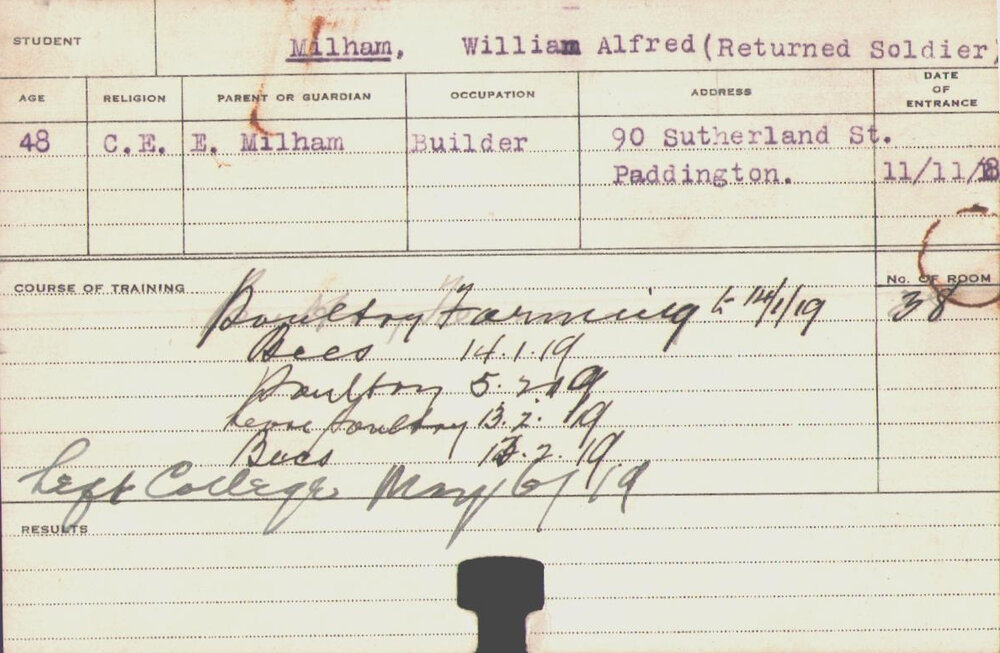 STUDENT Milham, William Alfred (Returned Soldier,
AGE RELIGION PARENT OR GUARDIAN OCCUPATION ADDRESS DATE OF ENTRANCE
48 C.E. E. Milham Builder 90 Sutherland St.
Paddington. 11/11/18
COURSE OF TRAINING No. OF ROOM
Poultry Farming to 14/1/19 38
Bees 14.1.19
Poultry 5.2.19
Leave poultry 13.2.19
Bees 13.2.19
Left College May 6/19
RESULTS